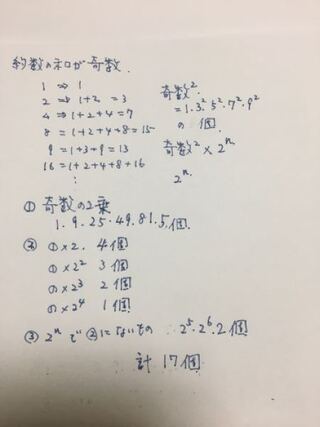 約数の和が奇数.
1 ⇒ 1
2 ⇒ 1+2 = 3
4 ⇒ 1+2+4=7
8 = 1+2+4+8=15
9 = 1+3+9=13
16 = 1+2+4+8+16
⋮
奇数².
= 1·3²·5²·7²·9²
の 個
奇数² × 2ⁿ
2ⁿ
① 奇数の2乗
1. 9. 25. 49. 81. 5個.
② ①×2. 4個
①×2² 3個
①×2³ 2個
①×2⁴ 1個
③ 2ⁿで②にないもの 2⁵·2⁶·2個
計 17個